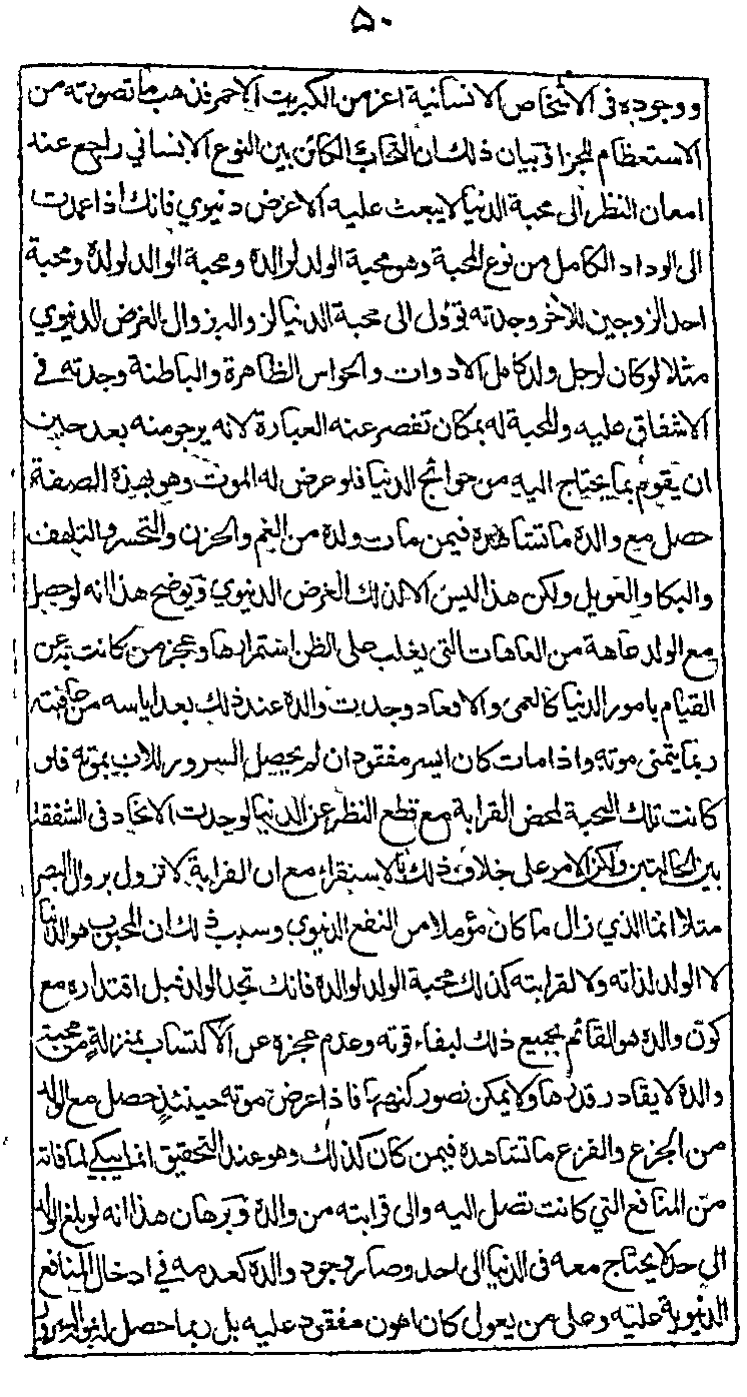 ٥٠
ووجوده في الاشخاص الانسانية اعز من الكبريت الاحمر فذهب ما تصورته من
الاستعظام للجزا وبيان ذلك ان التحاب الكائن بين النوع الانساني راجع عند
امعان النظر الى محبة الدنيا لا يبعث عليه الا غرض دنيوي فانك اذا عمدت
الى الوداد الكامل من نوع المحبة وهو محبة الولد لوالده ومحبة الوالد لولده ومحبة
احد الزوجين للآخر وجدته تؤول الى محبة الدنيا لزواله بزوال الغرض الدنيوي
مثلا لو كان لرجل ولد كامل الادوات والحواس الظاهرة والباطنة وجدته في
الاشفاق عليه والمحبة له بمكان تقصر عنه العبارة لانه يرجو منه بعد حين
ان يقوم بما يحتاج اليه من حوائج الدنيا فلو عرض له الموت وهو بهذه الصفة
حصل مع والده ما تشاهده فيمن مات ولده من الغم والحزن والتحسر والتلهف
والبكا والعويل ولكن هذا ليس الا لذلك الغرض الدنيوي ويوضح هذا انه لو حصل
مع الولد عاهة من العاهات التي يغلب على الظن استمرارها وعجز من كانت به عن
القيام بامور الدنيا كالعمى والاقعاد وجدت والده عند ذلك بعد اياسه من عافيته
ربما يتمنى موته واذا مات كان ايسر مفقود ان لم يحصل السرور للاب بموته فلو
كانت تلك المحبة لمحض القرابة مع قطع النظر عن الدنيا لوجدت الاتحاد في الشفقة
بين الحالتين ولكن الامر على خلاف ذلك بالاستقراء مع ان القرابة لا تزول بزوال البصر
مثلا انما الذي زال ما كان مؤملا من النفع الدنيوي وسبب ذلك ان المحبوب هو الدنيا
لا الولد لذاته ولا لقرابته كذلك محبة الولد لوالده فانك تجد الولد قبل اقتداره مع
كون والده هو القائم بجميع ذلك لبقاء قوته وعدم عجزه عن الاكتساب بمنزلة من محبة
والده لا يقادر قدرها ولا يمكن تصور كنهها فاذا عرض موته حينئذ حصل مع الولد
من الجزع والفزع ما تشاهده فيمن كان كذلك وهو عند التحقيق انما يبكي لما فاته
من المنافع التي كانت تصل اليه والى قرابته من والده وبرهان هذا انه لو بلغ الولد
الى حد لا يحتاج معه في الدنيا الى احد وصار وجود والده كعدمه في ادخال المنافع
الدنيوية عليه وعلى من يعول كان اهون مفقود عليه بل ربما حصل